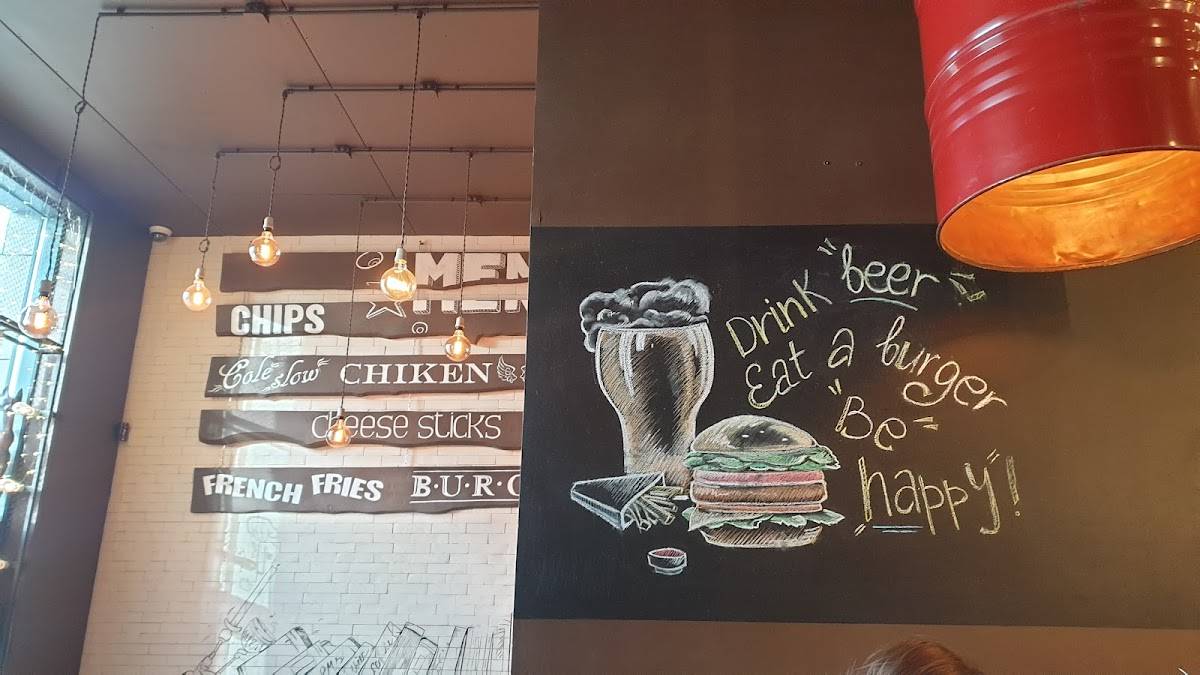 MEN
CHIPS
Cole slow CHIKEN
cheese sticks
FRENCH FRIES B·U·R·G
Drink "beer"
Eat a burger
"Be"
happy"!